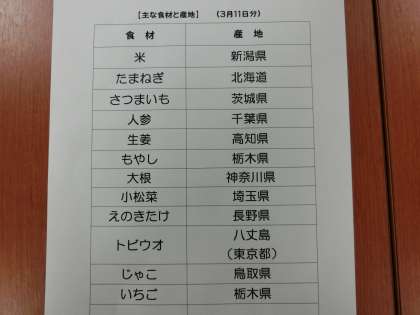 【主な食材と産地】 （3月11日分）
食材 産地
米 新潟県
たまねぎ 北海道
さつまいも 茨城県
人参 千葉県
生姜 高知県
もやし 栃木県
大根 神奈川県
小松菜 埼玉県
えのきたけ 長野県
トビウオ 八丈島
（東京都）
じゃこ 鳥取県
いちご 栃木県